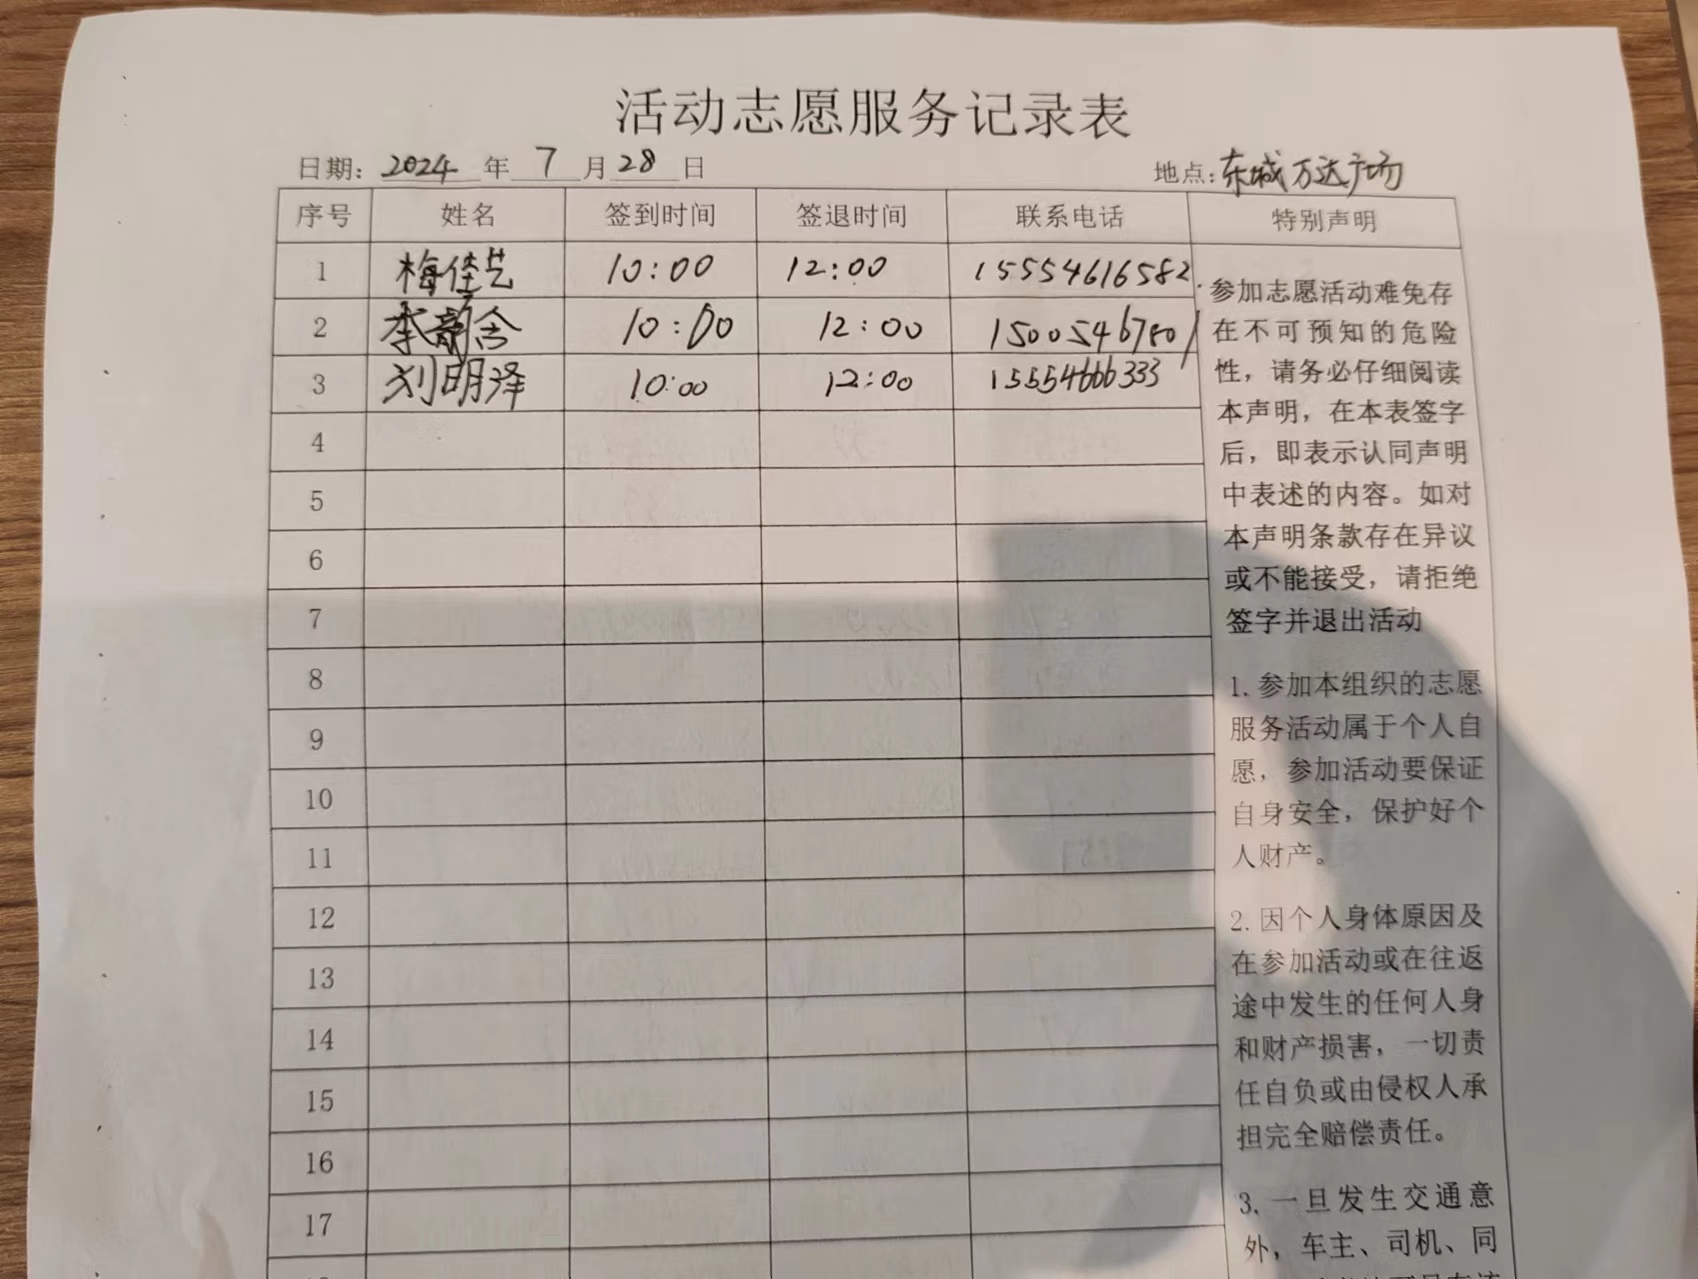 活动志愿服务记录表
日期: 2024 年 7 月 28 日 地点: 东城万达广场
序号 姓名 签到时间 签退时间 联系电话 特别声明
1 梅佳艺 10:00 12:00 15554616582
2 李 含 10:00 12:00 15005467801
3 刘明泽 10:00 12:00 15554666333
4
5
6
7
8
9
10
11
12
13
14
15
16
17
参加志愿活动难免存
在不可预知的危险
性，请务必仔细阅读
本声明，在本表签字
后，即表示认同声明
中表述的内容。如对
本声明条款存在异议
或不能接受，请拒绝
签字并退出活动
1. 参加本组织的志愿
服务活动属于个人自
愿，参加活动要保证
自身安全，保护好个
人财产。
2. 因个人身体原因及
在参加活动或在往返
途中发生的任何人身
和财产损害，一切责
任自负或由侵权人承
担完全赔偿责任。
3. 一旦发生交通意
外，车主、司机、同